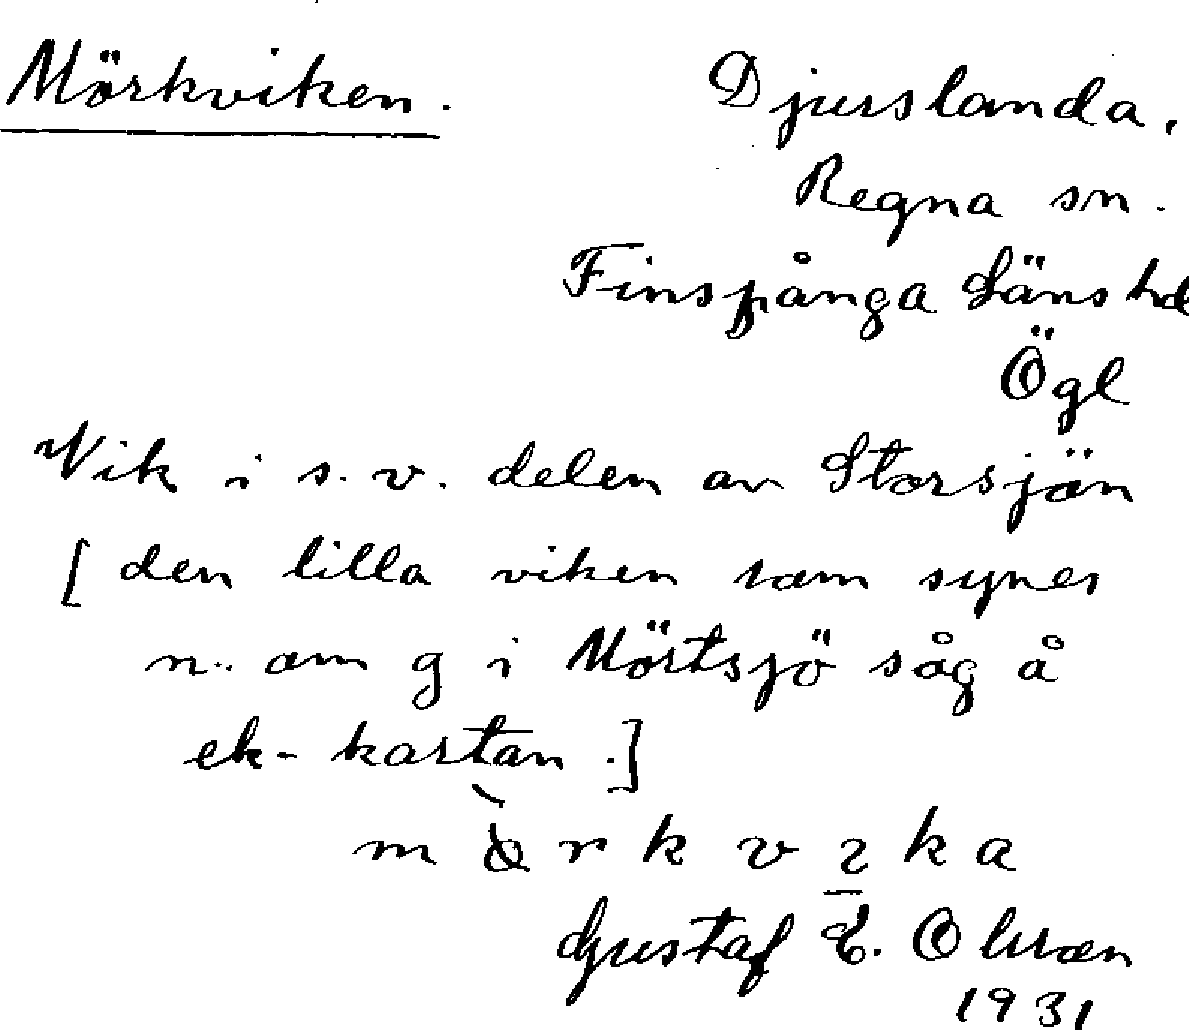 Mörkviken. Djurslanda,
Regna sn.
Finspånga Läns hd
Ögl
Vik i s. v. delen av Storsjön
[den lilla viken som synes
n. om g i Mörtsjö såg å
ek-kartan.]
Gustaf E. Olsson
1931